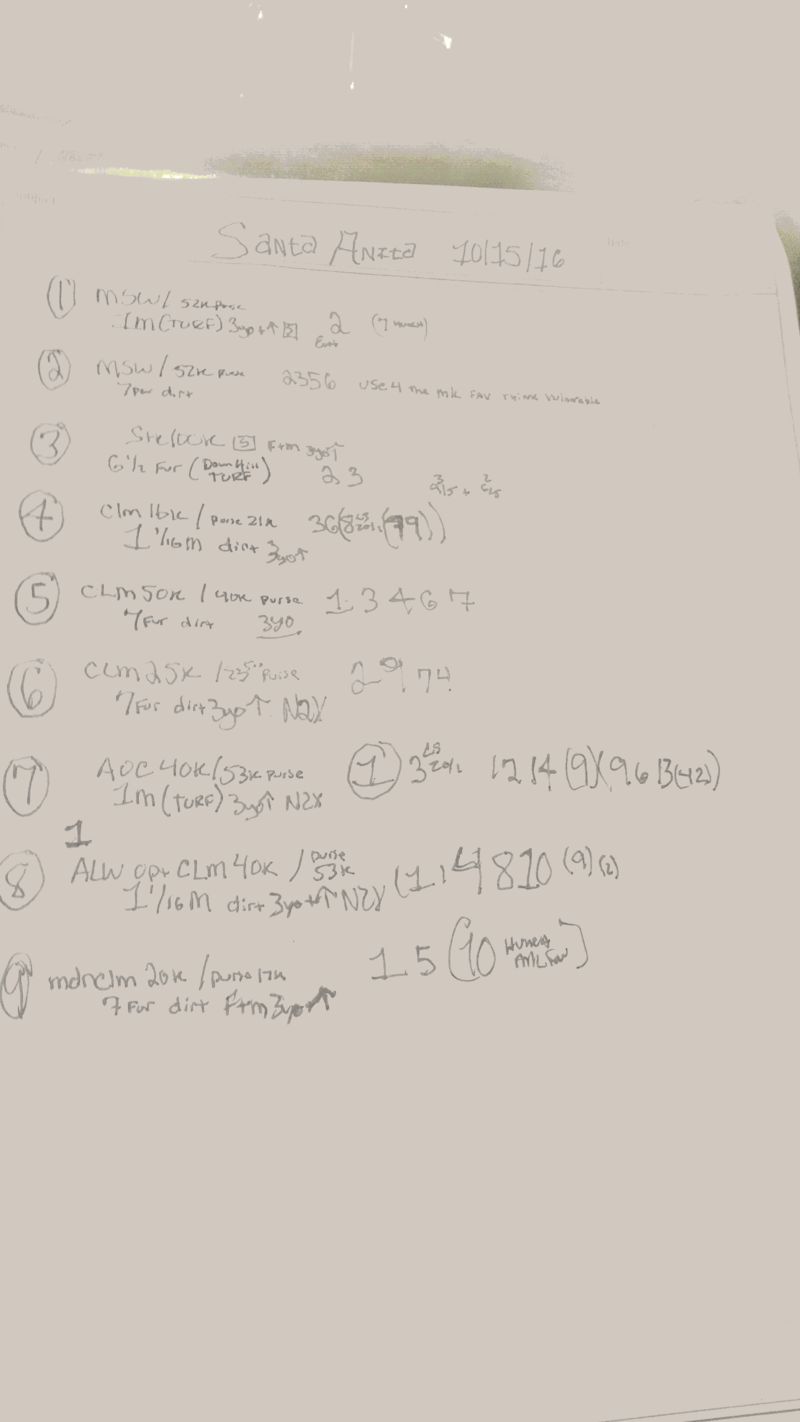 Santa Anita 10/15/16
① MSW/ 52K purse
1m (TURF) 3yo+↑ 5 2 (7
② MSW / 52K purse 2356 use 4 the mk FAV
7fur dirt
③ 5 F+m 3yo↑
6 1/2 Fur (Down Hill TURF) 2 3
④ Clm 16K / purse 21K 36(8 (79))
1 1/16 M dirt 3yo↑
⑤ CLM 50K / 40K purse 1 3 4 6 7
7Fur dirt 3yo
⑥ CLM 25K / purse 2 9 7 4
7Fur dirt 3yo↑ N2X
⑦ AOC 40K/53K purse ① 3 12 14 (9)(9 6 13(42)
1m (TURF) 3yo↑ N2X
1
⑧ ALW opt CLM 40K / purse 53K (1, 4 8 10 (9) (2)
1 1/16 M dirt 3yo+↑ N2X
⑨ mdnclm 20K / purse 17K 1 5 (10
7 Fur dirt F+m 3yo↑